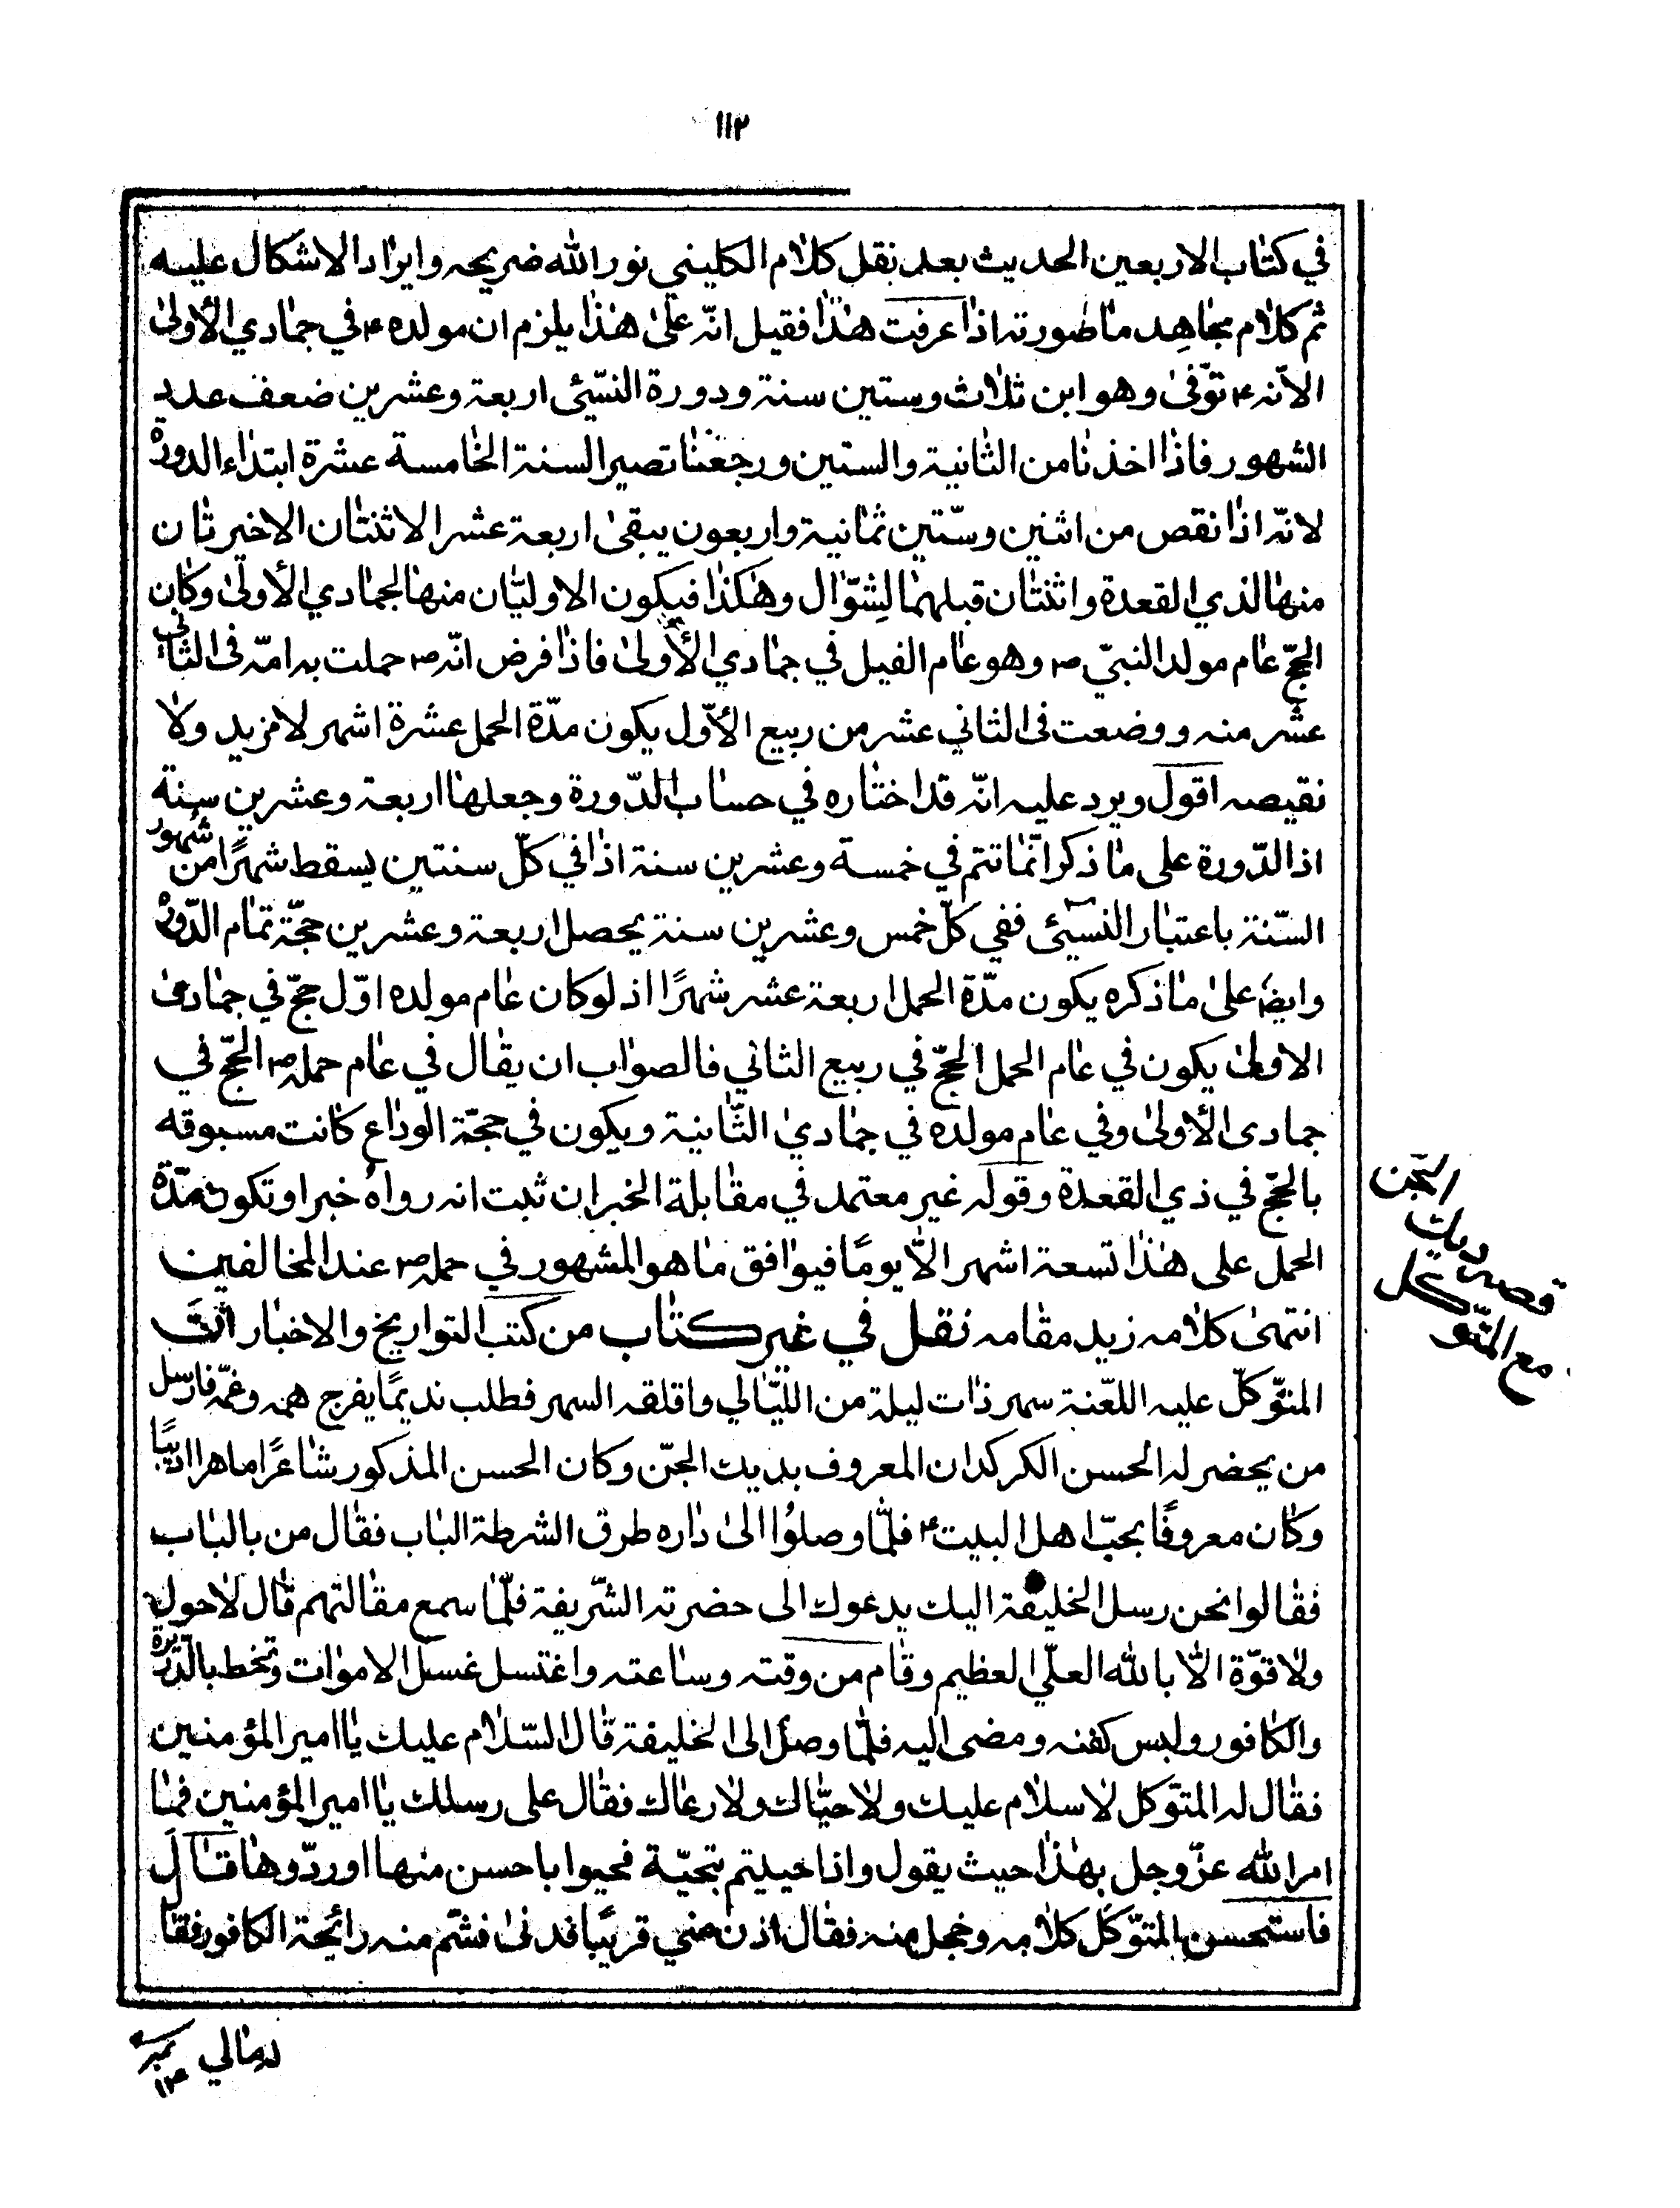 ١١٢
في كتاب الاربعين الحديث بعد نقل كلام الكليني نور الله ضريحه وايراد الاشكال عليه
ثم كلام مجاهد ما صورته اذا عرفت هذا فقيل انّه على هذا يلزم ان مولده ع في جمادي الأولى
الانّه ع توّفى وهو ابن ثلاث وستين سنة ودورة النسّيئى اربعة وعشرين ضعف عدد
الشهور فاذا اخذنا من الثانية والستين ورجعنا تصير السنة الخامسة عشرة ابتداء الدورة
لانّه اذا نقص من اثنين وستّين ثمانية واربعون يبقى اربعة عشر الاثنتان الاخيرتان
منها لذي القعدة واثنتان قبلهما لشوّال وهكذا فيكون الاوليّان منها لجمادي الأولى وكان
الحجّ عام مولد النبيّ ص وهو عام الفيل في جمادي الأولى فاذا فرض انّه ص حملت به امّه فى الثاني
عشر منه ووضعت فى الثاني عشر من ربيع الأوّل يكون مدّة الحمل عشرة اشهر لا مزيد ولا
نقيصه اقول ويرد عليه انّه قد اختاره في حساب الدّورة وجعلها اربعة وعشرين سنة
اذ الدّورة على ما ذكر انّما تتم في خمسة وعشرين سنة اذا في كلّ سنتين يسقط شهرًا من شهور
السّنة باعتبار النسيئى ففي كلّ خمس وعشرين سنة يحصل اربعة وعشرين حجّة تمام الدّورة
وايضا على ما ذكره يكون مدّة الحمل اربعة عشر شهرًا اذ لو كان عام مولده اوّل حجّ في جمادى
الاولى يكون في عام الحمل الحجّ في ربيع الثاني فالصواب ان يقال في عام حمله ص الحجّ في
جمادى الأولى وفي عام مولده في جمادي الثّانية ويكون في حجّة الوداع كانت مسبوقه
بالحجّ في ذي القعدة وقوله غير معتمد في مقابلة الخبر ان ثبت انه رواه خبرا وتكون مدّة
الحمل على هذا تسعة اشهر الّا يومًا فيوافق ما هو المشهور في حمله ص عند المخالفين
انتهى كلامه زيد مقامه نقل في غير كتاب من كتب التواريخ والاخبار انّ
المتوّكلّ عليه اللعّنة سهر ذات ليلة من الليّالي واقلقه السهر فطلب نديمًا يفرج همه وغمّه فارسل
من يحضر له الحسن الكركدان المعروف بديك الجنّ وكان الحسن المذكور شاعرًا ماهرا اديبًا
وكان معروفًا بحبّ اهل البيت ع فلمّا وصلوا الى داره طرق الشرطة الباب فقال من بالباب
فقالوا نحن رسل الخليفة اليك يدعوك الى حضرته الشّريفة فلّما سمع مقالتهم قال لا حول
ولا قوّة الّا بالله العلّي العظيم وقام من وقته وساعته واغتسل غسل الاموات وتحنط بالذّريرة
والكافور ولبس كفنه ومضى اليه فلمّا وصل الى الخليفة قال السّلام عليك يا امير المؤمنين
فقال له المتوّكل لا سلام عليك ولا حيّاك ولا رعاك فقال على رسلك يا امير المؤمنين فما
امر الله عزّ وجل بهذا حيث يقول واذا حييتم بتحيّة فحيوا باحسن منها او ردّوها قال
فاستحسن المتوّكل كلامه وخجل منه فقال اذن مني قريبًا فدنى فشّم منه رائحة الكافور فقال
قصه ديك الجّن
مع المتّوكل
نمبر ١٣